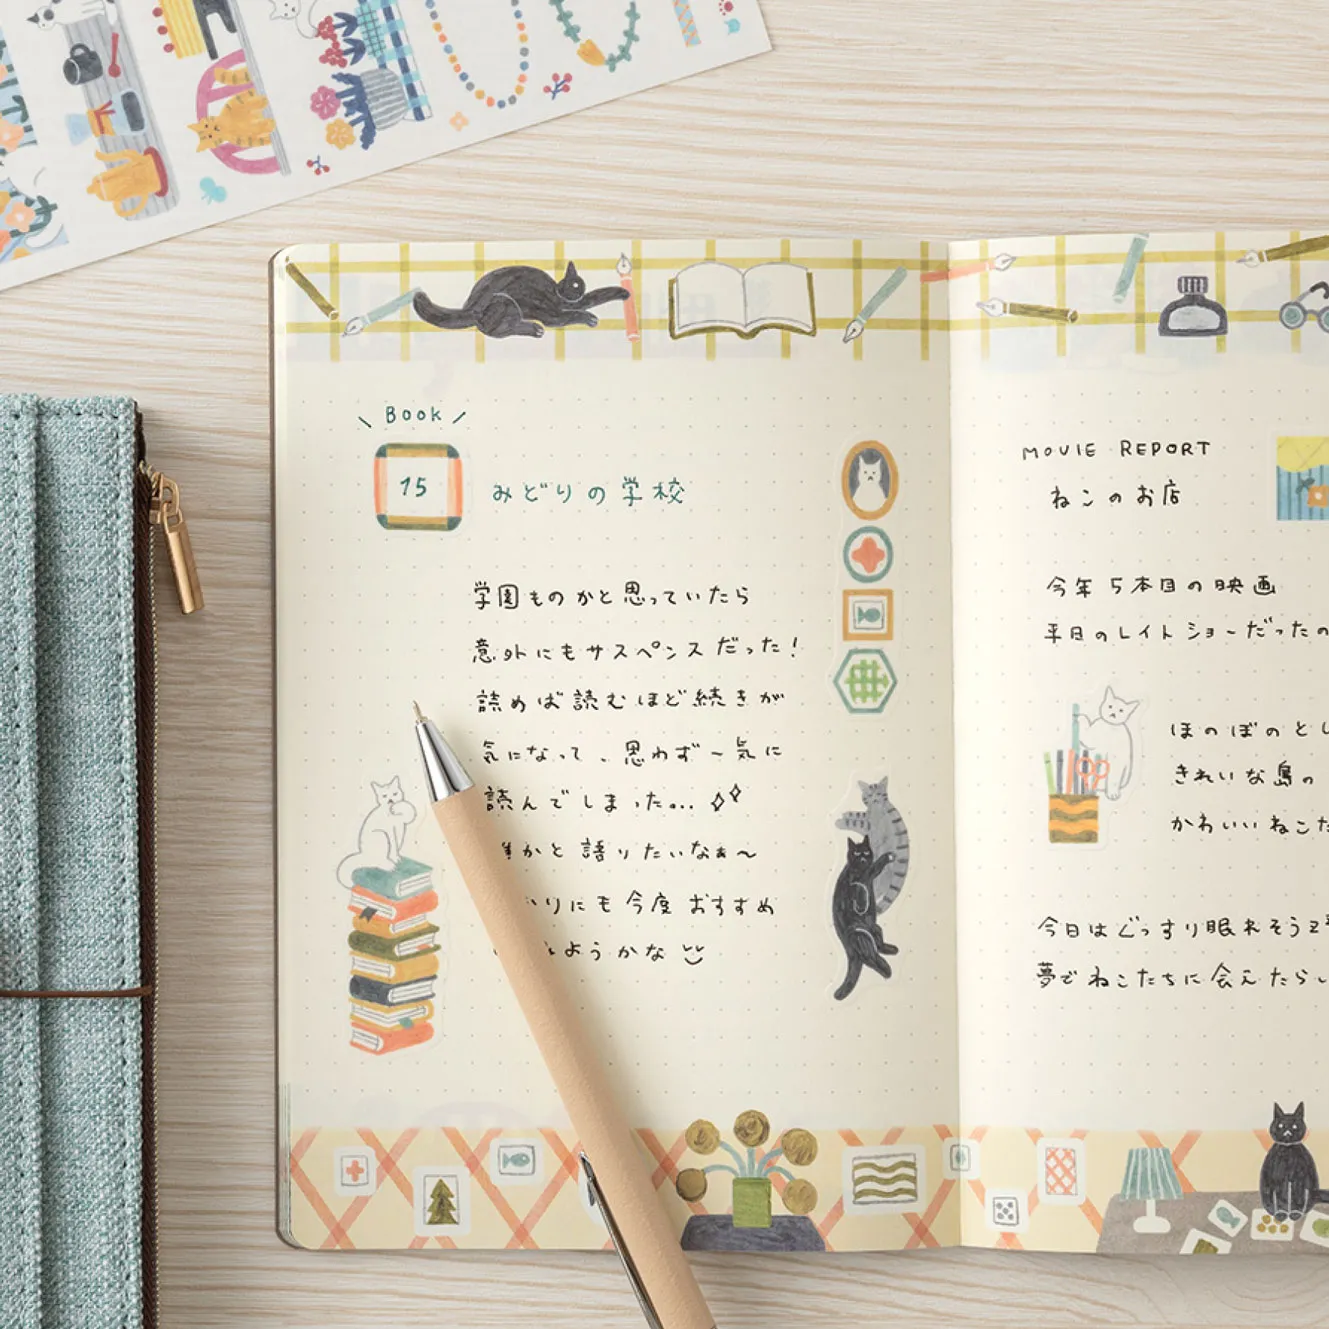 Book
15
みどりの学校
学園ものかと思っていたら
意外にもサスペンスだった!
読めば読むほど続きが
気になって、思わず〜気に
読んでしまった...
かと語りたいなぁ〜
りにも今度おすすめ
ようかな
MOVIE REPORT
ねこのお店
今年5本目の映画
平日のレイトショーだったの
ほのぼのとし
きれいな島の
かわいいねこた
今日はぐっすり眠れそうzz
夢でねこたちに会えたらい